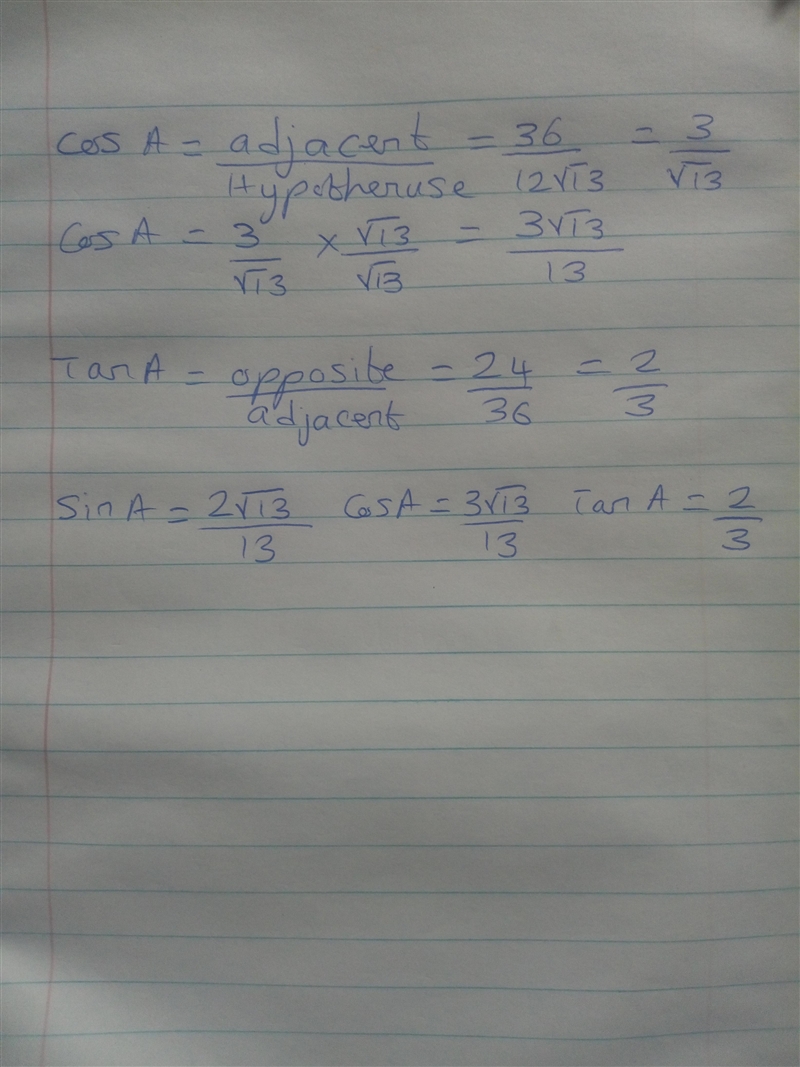 Cos A = adjacent / Hypotenuse = 36 / 12√13 = 3 / √13
Cos A = 3 / √13 × √13 / √13 = 3√13 / 13
Tan A = opposite / adjacent = 24 / 36 = 2 / 3
Sin A = 2√13 / 13 Cos A = 3√13 / 13 Tan A = 2 / 3